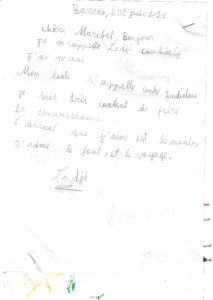 Bamako, le 02 juin 2021
chère Maribel, Bonjour
Je m'appelle Ladji
J'ai 10 ans
Mon école s'appelle
Je suis très content de faire
ta connaissance.
L'animal que j'aime est le mouton
J'aime le foot, et le voyage.
Ladji